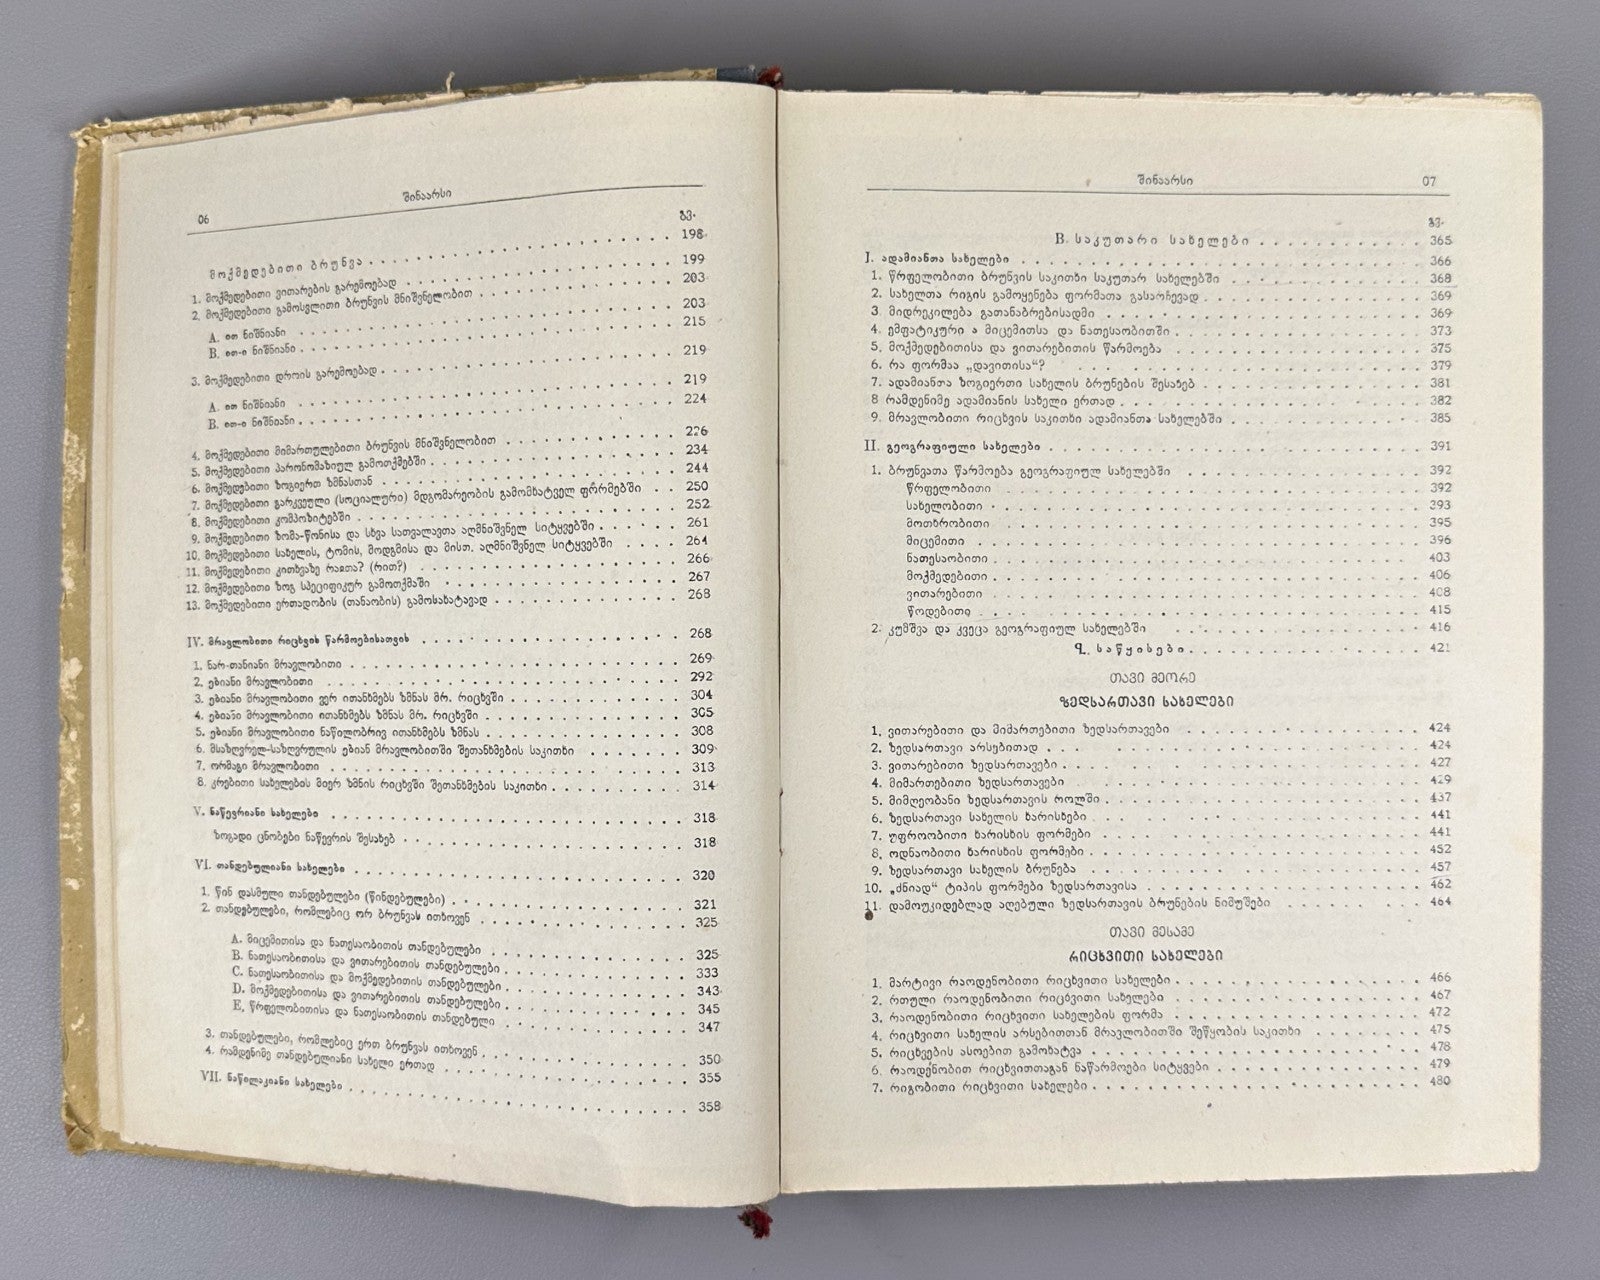 06 შინაარსი
გვ.
მოქმედებითი ბრუნვა 198
1. მოქმედებითი ვითარების გარემოებად 199
2. მოქმედებითი გამოსვლითი ბრუნვის მნიშვნელობით 203
A. ით ნიშნიანი 203
B. ით-ი ნიშნიანი 215
3. მოქმედებითი დროის გარემოებად 219
A. ით ნიშნიანი 219
B. ით-ი ნიშნიანი 224
4. მოქმედებითი მიმართულებითი ბრუნვის მნიშვნელობით 226
5. მოქმედებითი პარონომაზიულ გამოთქმებში 234
6. მოქმედებითი ზოგიერთ ზმნასთან 244
7. მოქმედებითი გარკვეული (სოციალური) მდგომარეობის გამომხატველ ფორმებში 250
8. მოქმედებითი კომპოზიტებში 252
9. მოქმედებითი ზომა-წონისა და სხვა სათვალავთა აღმნიშვნელ სიტყვებში 261
10. მოქმედებითი სახელის, ტომის, მოდგმისა და მისთ. აღმნიშვნელ სიტყვებში 264
11. მოქმედებითი კითხვაზე რაჲთა? (რით?) 266
12. მოქმედებითი ზოგ სპეციფიკურ გამოთქმაში 267
13. მოქმედებითი ერთადობის (თანაობის) გამოსახატავად 268
IV. მრავლობითი რიცხვის წარმოებისათვის 268
1. ნარ-თანიანი მრავლობითი 269
2. ებიანი მრავლობითი 292
3. ებიანი მრავლობითი ვერ ითანხმებს ზმნას მრ. რიცხვში 304
4. ებიანი მრავლობითი ითანხმებს ზმნას მრ. რიცხვში 305
5. ებიანი მრავლობითი ნაწილობრივ ითანხმებს ზმნას 308
6. მსაზღვრელ-საზღვრულის ებიან მრავლობითში შეთანხმების საკითხი 309
7. ორმაგი მრავლობითი 313
8. კრებითი სახელების მიერ ზმნის რიცხვში შეთანხმების საკითხი 314
V. ნაწევრიანი სახელები 318
ზოგადი ცნობები ნაწევრის შესახებ 318
VI. თანდებულიანი სახელები 320
1. წინ დასმული თანდებულები (წინდებულები) 321
2. თანდებულები, რომლებიც ორ ბრუნვას ითხოვენ 325
A. მიცემითისა და ნათესაობითის თანდებულები 325
B. ნათესაობითისა და ვითარებითის თანდებულები 333
C. ნათესაობითისა და მოქმედებითის თანდებულები 343
D. მოქმედებითისა და ვითარებითის თანდებულები 345
E. წრფელობითისა და ნათესაობითის თანდებული 347
3. თანდებულები, რომლებიც ერთ ბრუნვას ითხოვენ 350
4. რამდენიმე თანდებულიანი სახელი ერთად 355
VII. ნაწილაკიანი სახელები 358
შინაარსი 07
გვ.
B. საკუთარი სახელები 365
I. ადამიანთა სახელები 366
1. წრფელობითი ბრუნვის საკითხი საკუთარ სახელებში 368
2. სახელთა რიგის გამოყენება ფორმათა გასარჩევად 369
3. მიდრეკილება გათანაბრებისადმი 369
4. ემფატიკური ა მიცემითსა და ნათესაობითში 373
5. მოქმედებითისა და ვითარებითის წარმოება 375
6. რა ფორმაა „დავითისა“? 379
7. ადამიანთა ზოგიერთი სახელის ბრუნების შესახებ 381
8 რამდენიმე ადამიანის სახელი ერთად 382
9. მრავლობითი რიცხვის საკითხი ადამიანთა სახელებში 385
II. გეოგრაფიული სახელები 391
1. ბრუნვათა წარმოება გეოგრაფიულ სახელებში 392
წრფელობითი 392
სახელობითი 393
მოთხრობითი 395
მიცემითი 396
ნათესაობითი 403
მოქმედებითი 406
ვითარებითი 408
წოდებითი 415
2. კუმშვა და კვეცა გეოგრაფიულ სახელებში 416
საწყისები 421
თავი მეორე
ზედსართავი სახელები
1. ვითარებითი და მიმართებითი ზედსართავები 424
2. ზედსართავი არსებითად 424
3. ვითარებითი ზედსართავები 427
4. მიმართებითი ზედსართავები 429
5. მიმღეობანი ზედსართავის როლში 437
6. ზედსართავი სახელის ხარისხები 441
7. უფროობითი ხარისხის ფორმები 441
8. ოდნაობითი ხარისხის ფორმები 452
9. ზედსართავი სახელის ბრუნება 457
10. „ძნიად“ ტიპის ფორმები ზედსართავისა 462
11. დამოუკიდებლად აღებული ზედსართავის ბრუნების ნიმუშები 464
თავი მესამე
რიცხვითი სახელები
1. მარტივი რაოდენობითი რიცხვითი სახელები 466
2. რთული რაოდენობითი რიცხვითი სახელები 467
3. რაოდენობითი რიცხვითი სახელების ფორმა 472
4. რიცხვითი სახელის არსებითთან მრავლობითში შეწყობის საკითხი 475
5. რიცხვების ასოებით გამოხატვა 478
6. რაოდენობით რიცხვითთაგან ნაწარმოები სიტყვები 479
7. რიგობითი რიცხვითი სახელები 480